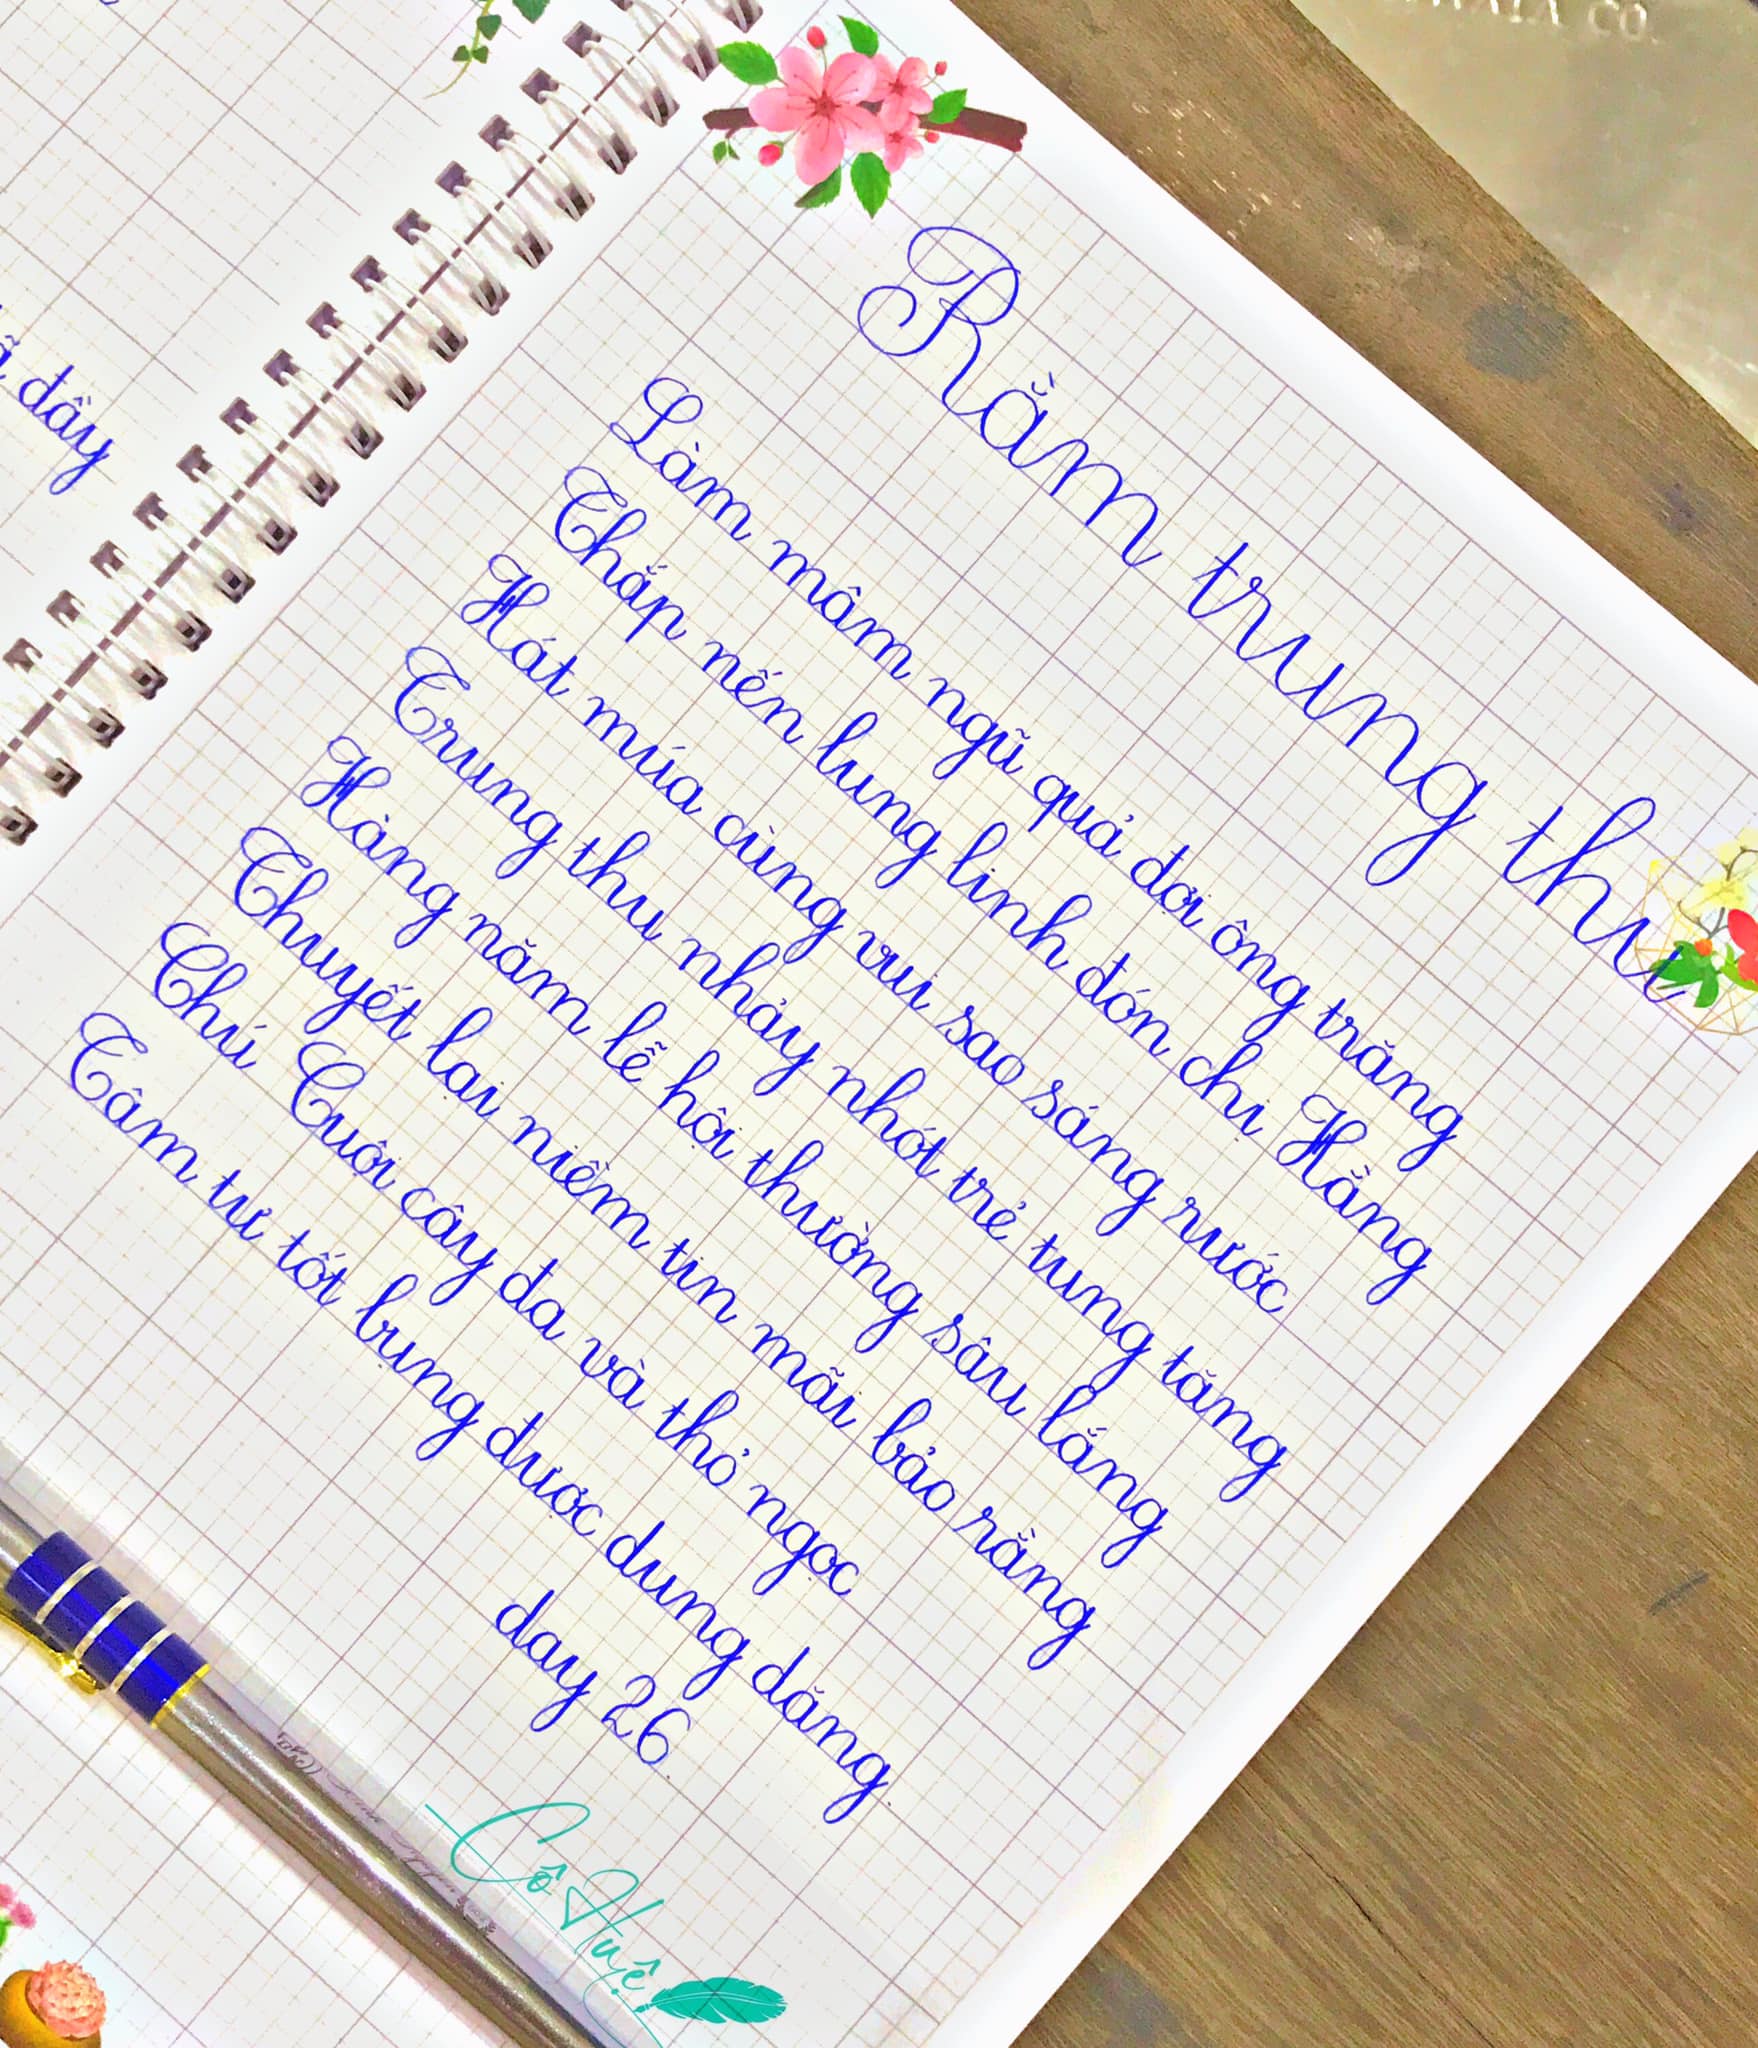 đầy
Rằm trung thu
Làm mâm ngũ quả đợi ông trăng
Thắp nến lung linh đón chị Hằng
Hát múa cùng vui sao sáng rước
Trung thu nhảy nhót trẻ tung tăng
Hàng năm lễ hội thường sâu lắng
Thuyết lại niềm tin mãi bảo rằng
Chú Cuội cây đa và thỏ ngọc
Tâm tư tốt bụng được dung dăng.
day 26.
Cô Huệ